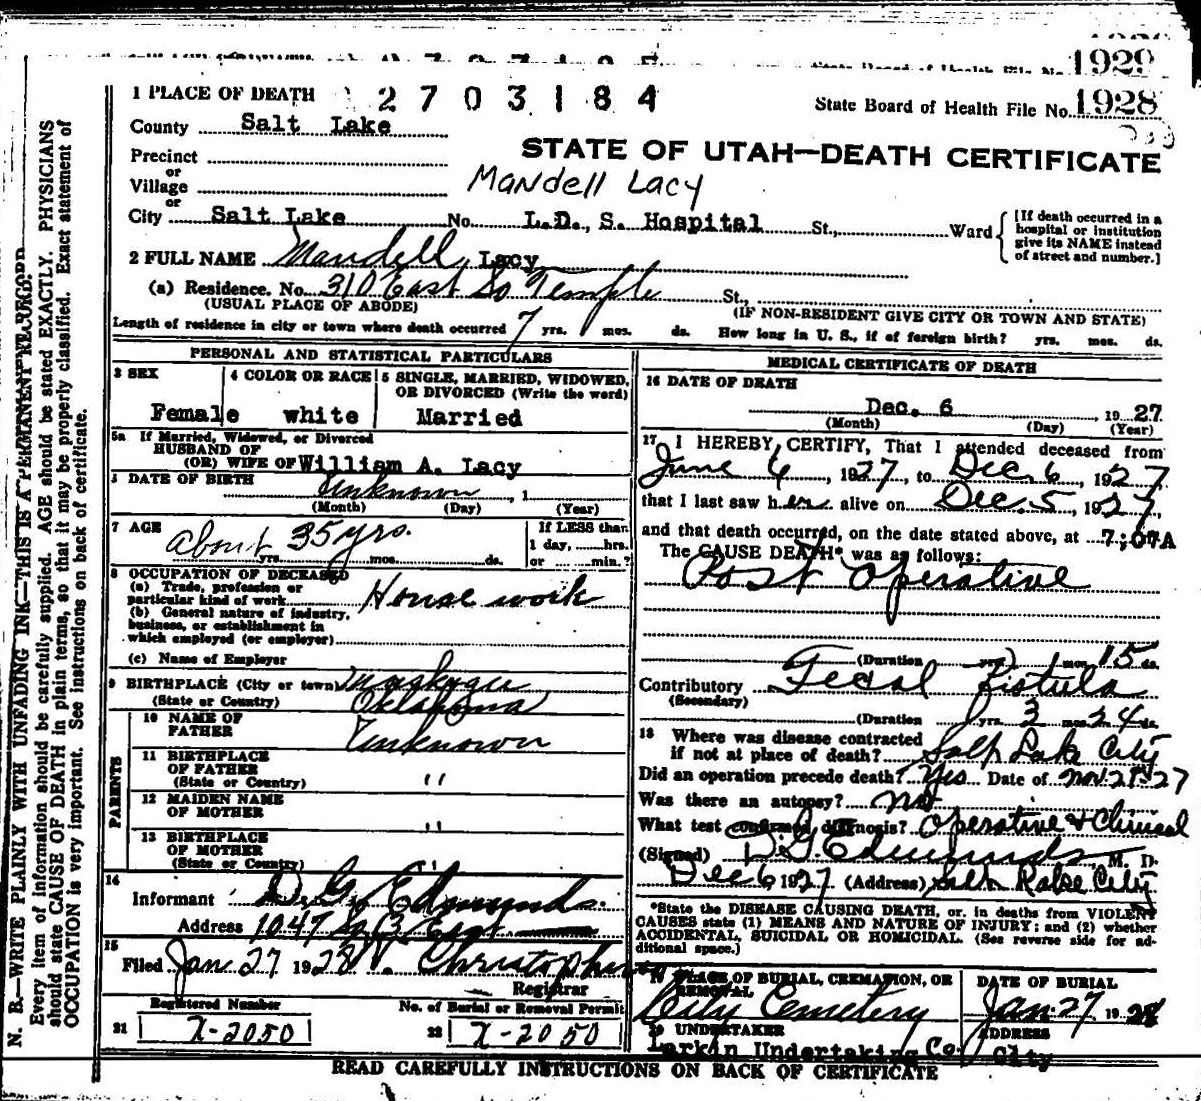 State Board of Health File No. 1929
1 PLACE OF DEATH 2703184 State Board of Health File No. 1928
County Salt Lake
STATE OF UTAH—DEATH CERTIFICATE
Precinct
or
Village Mandell Lacy
or
City Salt Lake No. L.D., S. Hospital St., Ward
[If death occurred in a
hospital or institution
give its NAME instead
of street and number.]
2 FULL NAME Mandell Lacy
(a) Residence. No. 310 East So Temple St.,
(USUAL PLACE OF ABODE) (IF NON-RESIDENT GIVE CITY OR TOWN AND STATE)
Length of residence in city or town where death occurred 7 yrs. mos. ds. How long in U. S., if of foreign birth? yrs. mos. ds.
PERSONAL AND STATISTICAL PARTICULARS
3 SEX 4 COLOR OR RACE 5 SINGLE, MARRIED, WIDOWED,
OR DIVORCED (Write the word)
Female white Married
5a If Married, Widowed, or Divorced
HUSBAND OF
(OR) WIFE OF William A. Lacy
DATE OF BIRTH Unknown , 1
(Month) (Day) (Year)
7 AGE about 35 yrs.
yrs. mos. ds.
If LESS than
1 day, hrs.
or min.?
8 OCCUPATION OF DECEASED
(a) Trade, profession or
particular kind of work House work
(b) General nature of industry,
business, or establishment in
which employed (or employer)
(c) Name of Employer
9 BIRTHPLACE (City or town)
(State or Country) Oklahoma
PARENTS
10 NAME OF
FATHER Unknown
11 BIRTHPLACE
OF FATHER
(State or Country) "
12 MAIDEN NAME
OF MOTHER "
13 BIRTHPLACE
OF MOTHER
(State or Country) "
14
Informant D. G. Edmunds.
Address 1047 So 3 East
15
Filed Jan 27 1928 Christopherson
Registrar
Registered Number No. of Burial or Removal Permit
21 X-2050 22 X-2050
MEDICAL CERTIFICATE OF DEATH
16 DATE OF DEATH
Dec. 6 , 1927
(Month) (Day) (Year)
17 I HEREBY CERTIFY, That I attended deceased from
June 6 , 1927 to Dec. 6 , 1927
that I last saw her alive on Dec. 5 , 1927,
and that death occurred, on the date stated above, at 7;07A
The CAUSE DEATH* was as follows:
Post Operative
(Duration yrs. mos. 15 ds.
Contributory Fecal Fistula
(Secondary)
(Duration yrs. 3 mos. 24 ds.
18 Where was disease contracted
if not at place of death? Salt Lake City
Did an operation precede death? Yes Date of Nov. 21st 27
Was there an autopsy? No
What test confirmed diagnosis? Operative & Clinical
(Signed) D. G. Edmunds M. D.
Dec 6 1927 (Address) Salt Lake City
*State the DISEASE CAUSING DEATH, or, in deaths from VIOLENT
CAUSES state (1) MEANS AND NATURE OF INJURY; and (2) whether
ACCIDENTAL, SUICIDAL OR HOMICIDAL. (See reverse side for ad-
ditional space.)
19 PLACE OF BURIAL, CREMATION, OR
REMOVAL
City Cemetery
DATE OF BURIAL
Jan. 27 1928
20 UNDERTAKER
Larkin Undertaking Co.
ADDRESS
City
READ CAREFULLY INSTRUCTIONS ON BACK OF CERTIFICATE
N. B.—WRITE PLAINLY WITH UNFADING INK—THIS IS A PERMANENT RECORD
Every item of information should be carefully supplied. AGE should be stated EXACTLY. PHYSICIANS
should state CAUSE OF DEATH in plain terms, so that it may be properly classified. Exact statement of
OCCUPATION is very important. See instructions on back of certificate.